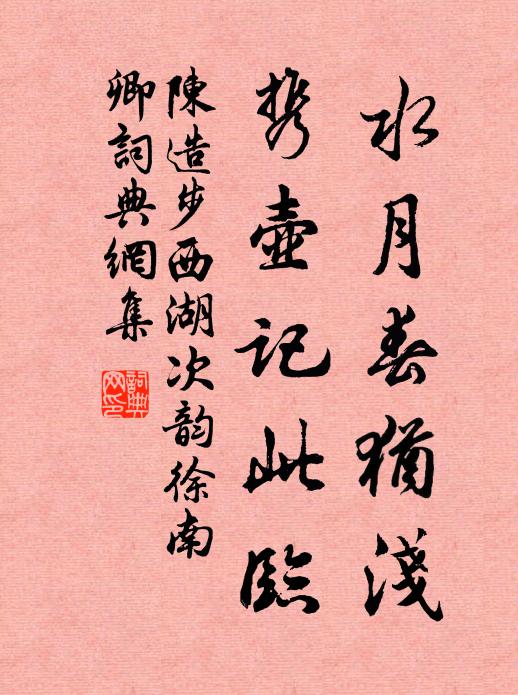 水月春猶淺
携壺記此臨
陳造步西湖次韵徐南
卿詞典網集
詞典
网印